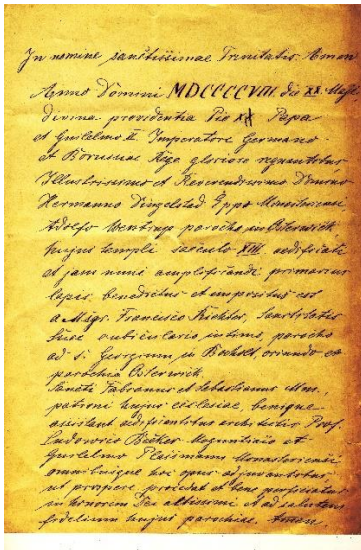 In nomine sanctissimae Trinitatis. Amen
Anno Domini MDCCCCVIII die XX.
divina providentia Pio X Papa
et Guilelmo II Imperatore Germano
et Borussiae Rege glorioso regnantibus
Illustrissimo et Reverendissimo Domino
Hermanno Dingelstad Eppo Monasteriensi
Adolfo Wentingo parocho in Osterwick
hujus templi saeculo XIII aedificati
et jam nunc amplificandi primarius
lapis benedictus et impositus est
a Msgr. Francisco Richter, Sanctitatis
suae cubiculario intimo, parocho
ad S. Georgium in Bocholt, oriundo ex
parochia Osterwick.
Sancti Fabianus et Sebastianus Mm.,
patroni hujus ecclesiae, benigne
assistant aedificantibus architectis Prof.
Ludovico Becker Moguntiaco et
Guilelmo Monasteriensi
omnibusque hoc opus adjuvantibus
ut prospere procedat et bene perficiatur
in honorem Dei altissimi et ad salutem
fidelium hujus parochiae. Amen.